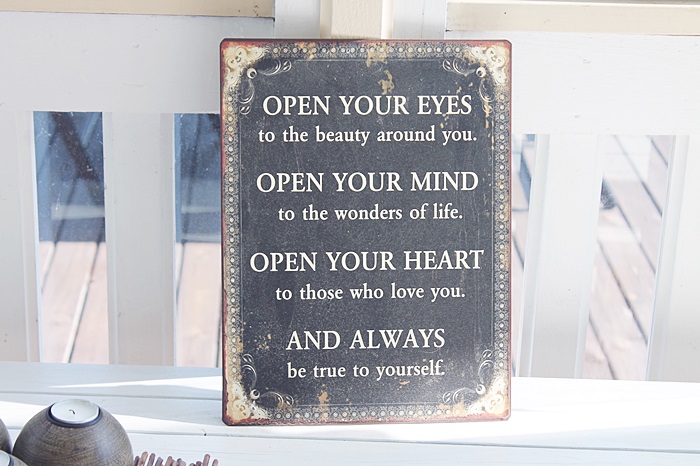 OPEN YOUR EYES
to the beauty around you.
OPEN YOUR MIND
to the wonders of life.
OPEN YOUR HEART
to those who love you.
AND ALWAYS
be true to yourself.